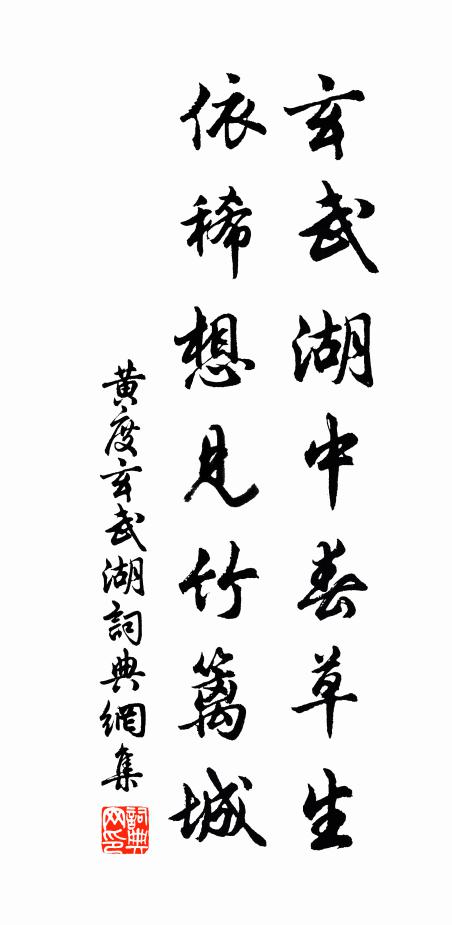 玄武湖中春草生
依稀想見竹籬城
黃度玄武湖詞典網集
詞典网印